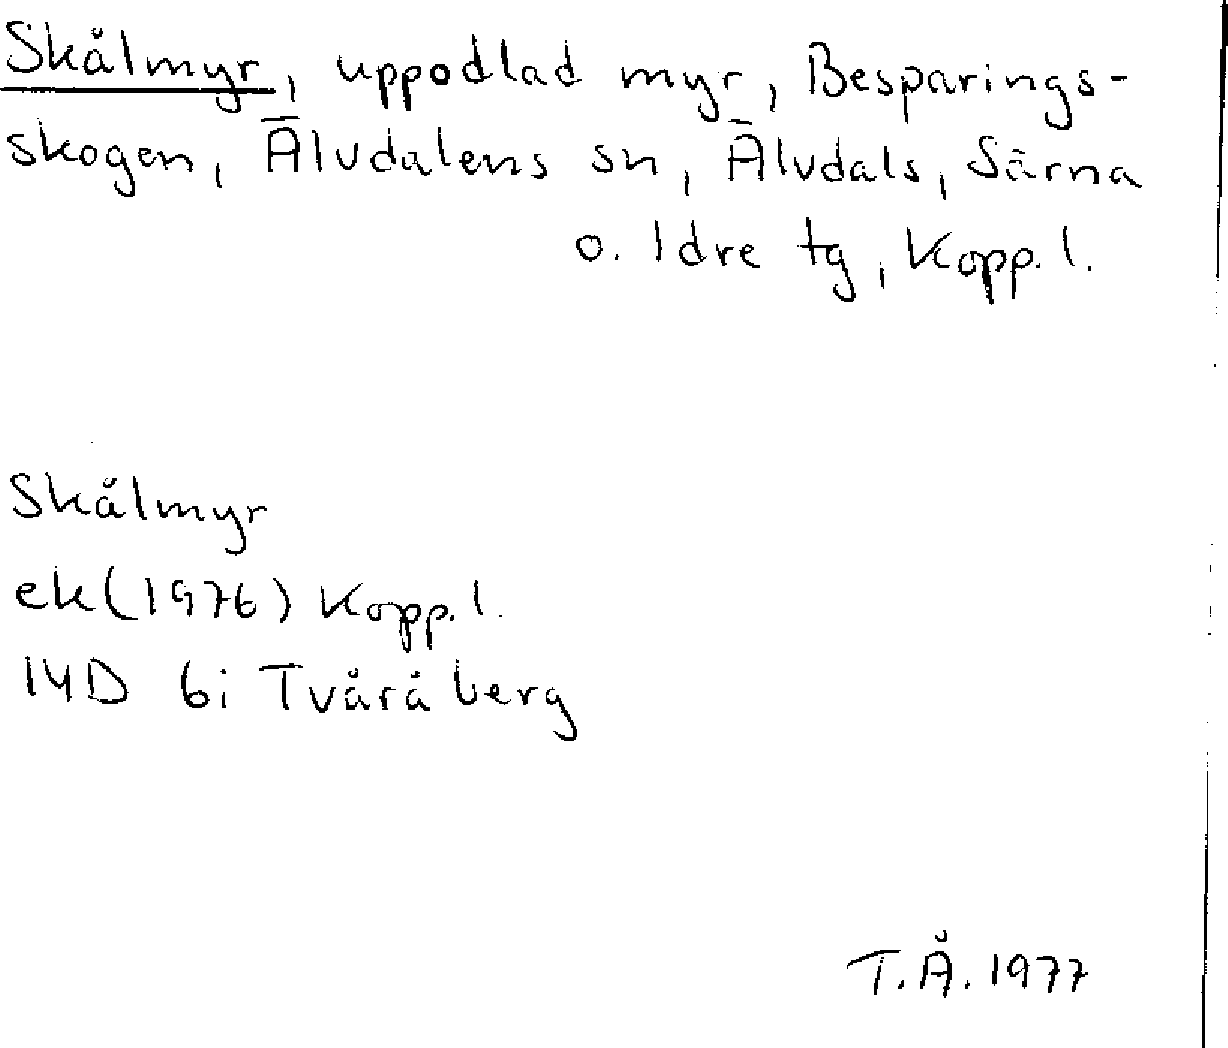 Skålmyr, uppodlad myr, Besparings-
skogen, Älvdalens sn, Älvdals, Särna
o. Idre tg, Kopp. l.
Skålmyr
ek (1976) Kopp. l.
14D 6i Tvåråberg
T.Å. 1977